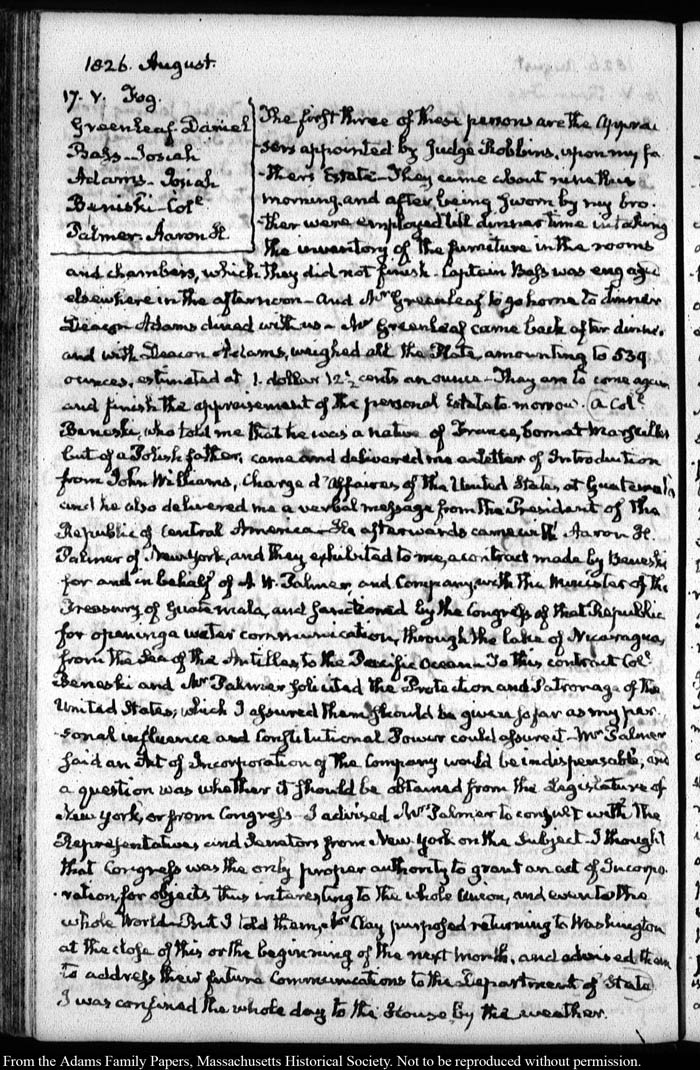 1826. August.
17. V. Fog.
Greenleaf. Daniel
Bass - Josiah
Adams - Josiah
Beniski - Col.
Palmer. Aaron H.
The first three of these persons are the apprai
-sers appointed by Judge Robbins, upon my fa
-ther's Estate - They came about nine this
morning, and after being sworn by my bro-
ther were employed till dinner time in taking
the inventory of the furniture in the rooms
and chambers, which they did not finish - Captain Bass was engaged
elsewhere in the afternoon - and Mr. Greenleaf to go home to dinner
Deacon Adams dined with us - Mr Greenleaf came back after dinner,
and with Deacon Adams, weighed all the Plate, amounting to 539
ounces, estimated at 1. dollar 12½ cents an ounce - They are to come again
and finish the appraisement of the personal Estate to-morrow. A Col.
Beneski, who told me that he was a native of France, born at Marseilles
but of a Polish father, came and delivered me a Letter of Introduction
from John Williams, Chargé d'Affaires of the United States at Guatemala
and he also delivered me a verbal message from the President of the
Republic of Central America - He afterwards came with Aaron H.
Palmer of New York, and they exhibited to me, a contract made by Beneski
for and in behalf of A. H. Palmer, and Company, with the Minister of the
Treasury of Guatemala, and sanctioned by the Congress of that Republic
for opening a water communication, through the lake of Nicaragua,
from the Sea of the Antilles, to the Pacific Ocean - To this contract Col.
Beneski and Mr Palmer solicited the Protection and Patronage of the
United States; which I assured them should be given so far as my per
-sonal influence and Constitutional Power could assure it - Mr Palmer
said an Act of Incorporation of the Company would be indispensable, and
a question was whether it should be obtained from the Legislature of
New York, or from Congress - I advised Mr Palmer to consult with the
Representatives and Senators from New York on the subject - I thought
that Congress was the only proper authority to grant an act of Incorpo-
-ration, for objects thus interesting to the whole Union, and even to the
whole World - But I told them, Mr Clay purposed returning to Washington
at the close of this or the beginning of the next month, and advised them
to address their future Communications to the Department of State
I was confined the whole day to the House, by the weather.
From the Adams Family Papers, Massachusetts Historical Society. Not to be reproduced without permission.